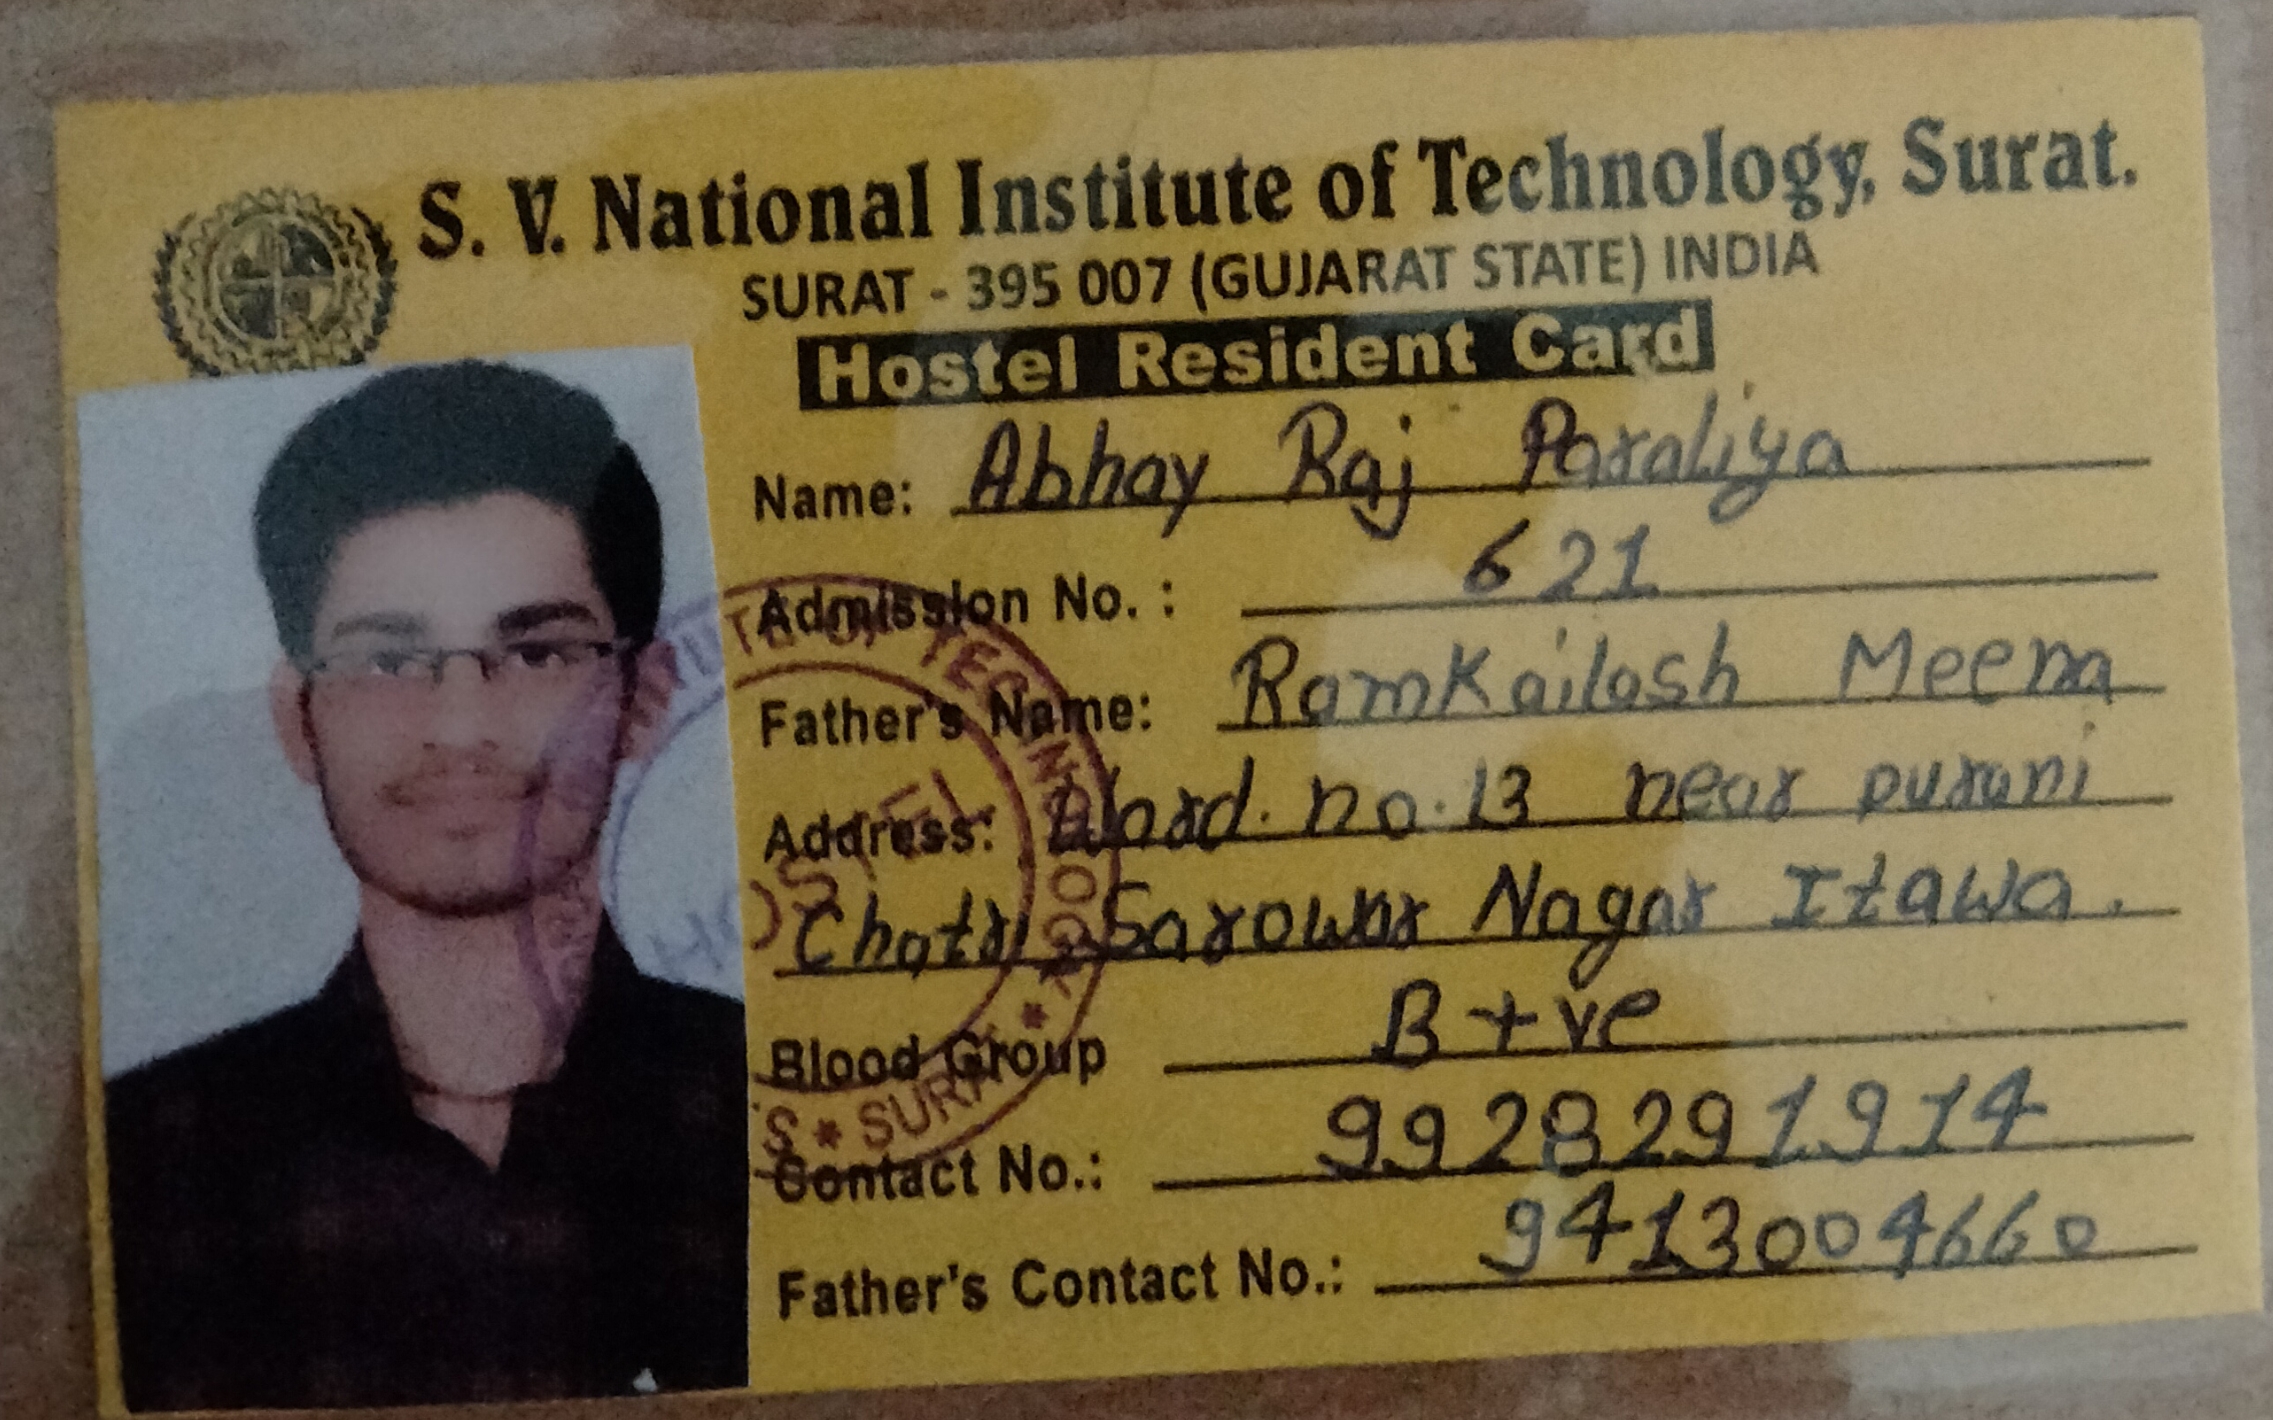 S. V. National Institute of Technology, Surat.
SURAT - 395 007 (GUJARAT STATE) INDIA
Hostel Resident Card
Name: Abhay Raj Paraliya
Admission No. : 621
Father's Name: RamKailash Meena
Address: Ward. no. 13 near purani
Chatri Sarowar Nagar Itawa.
Blood Group B+ve
Contact No.: 9928291914
Father's Contact No.: 9413004660
HOSTEL
SURAT